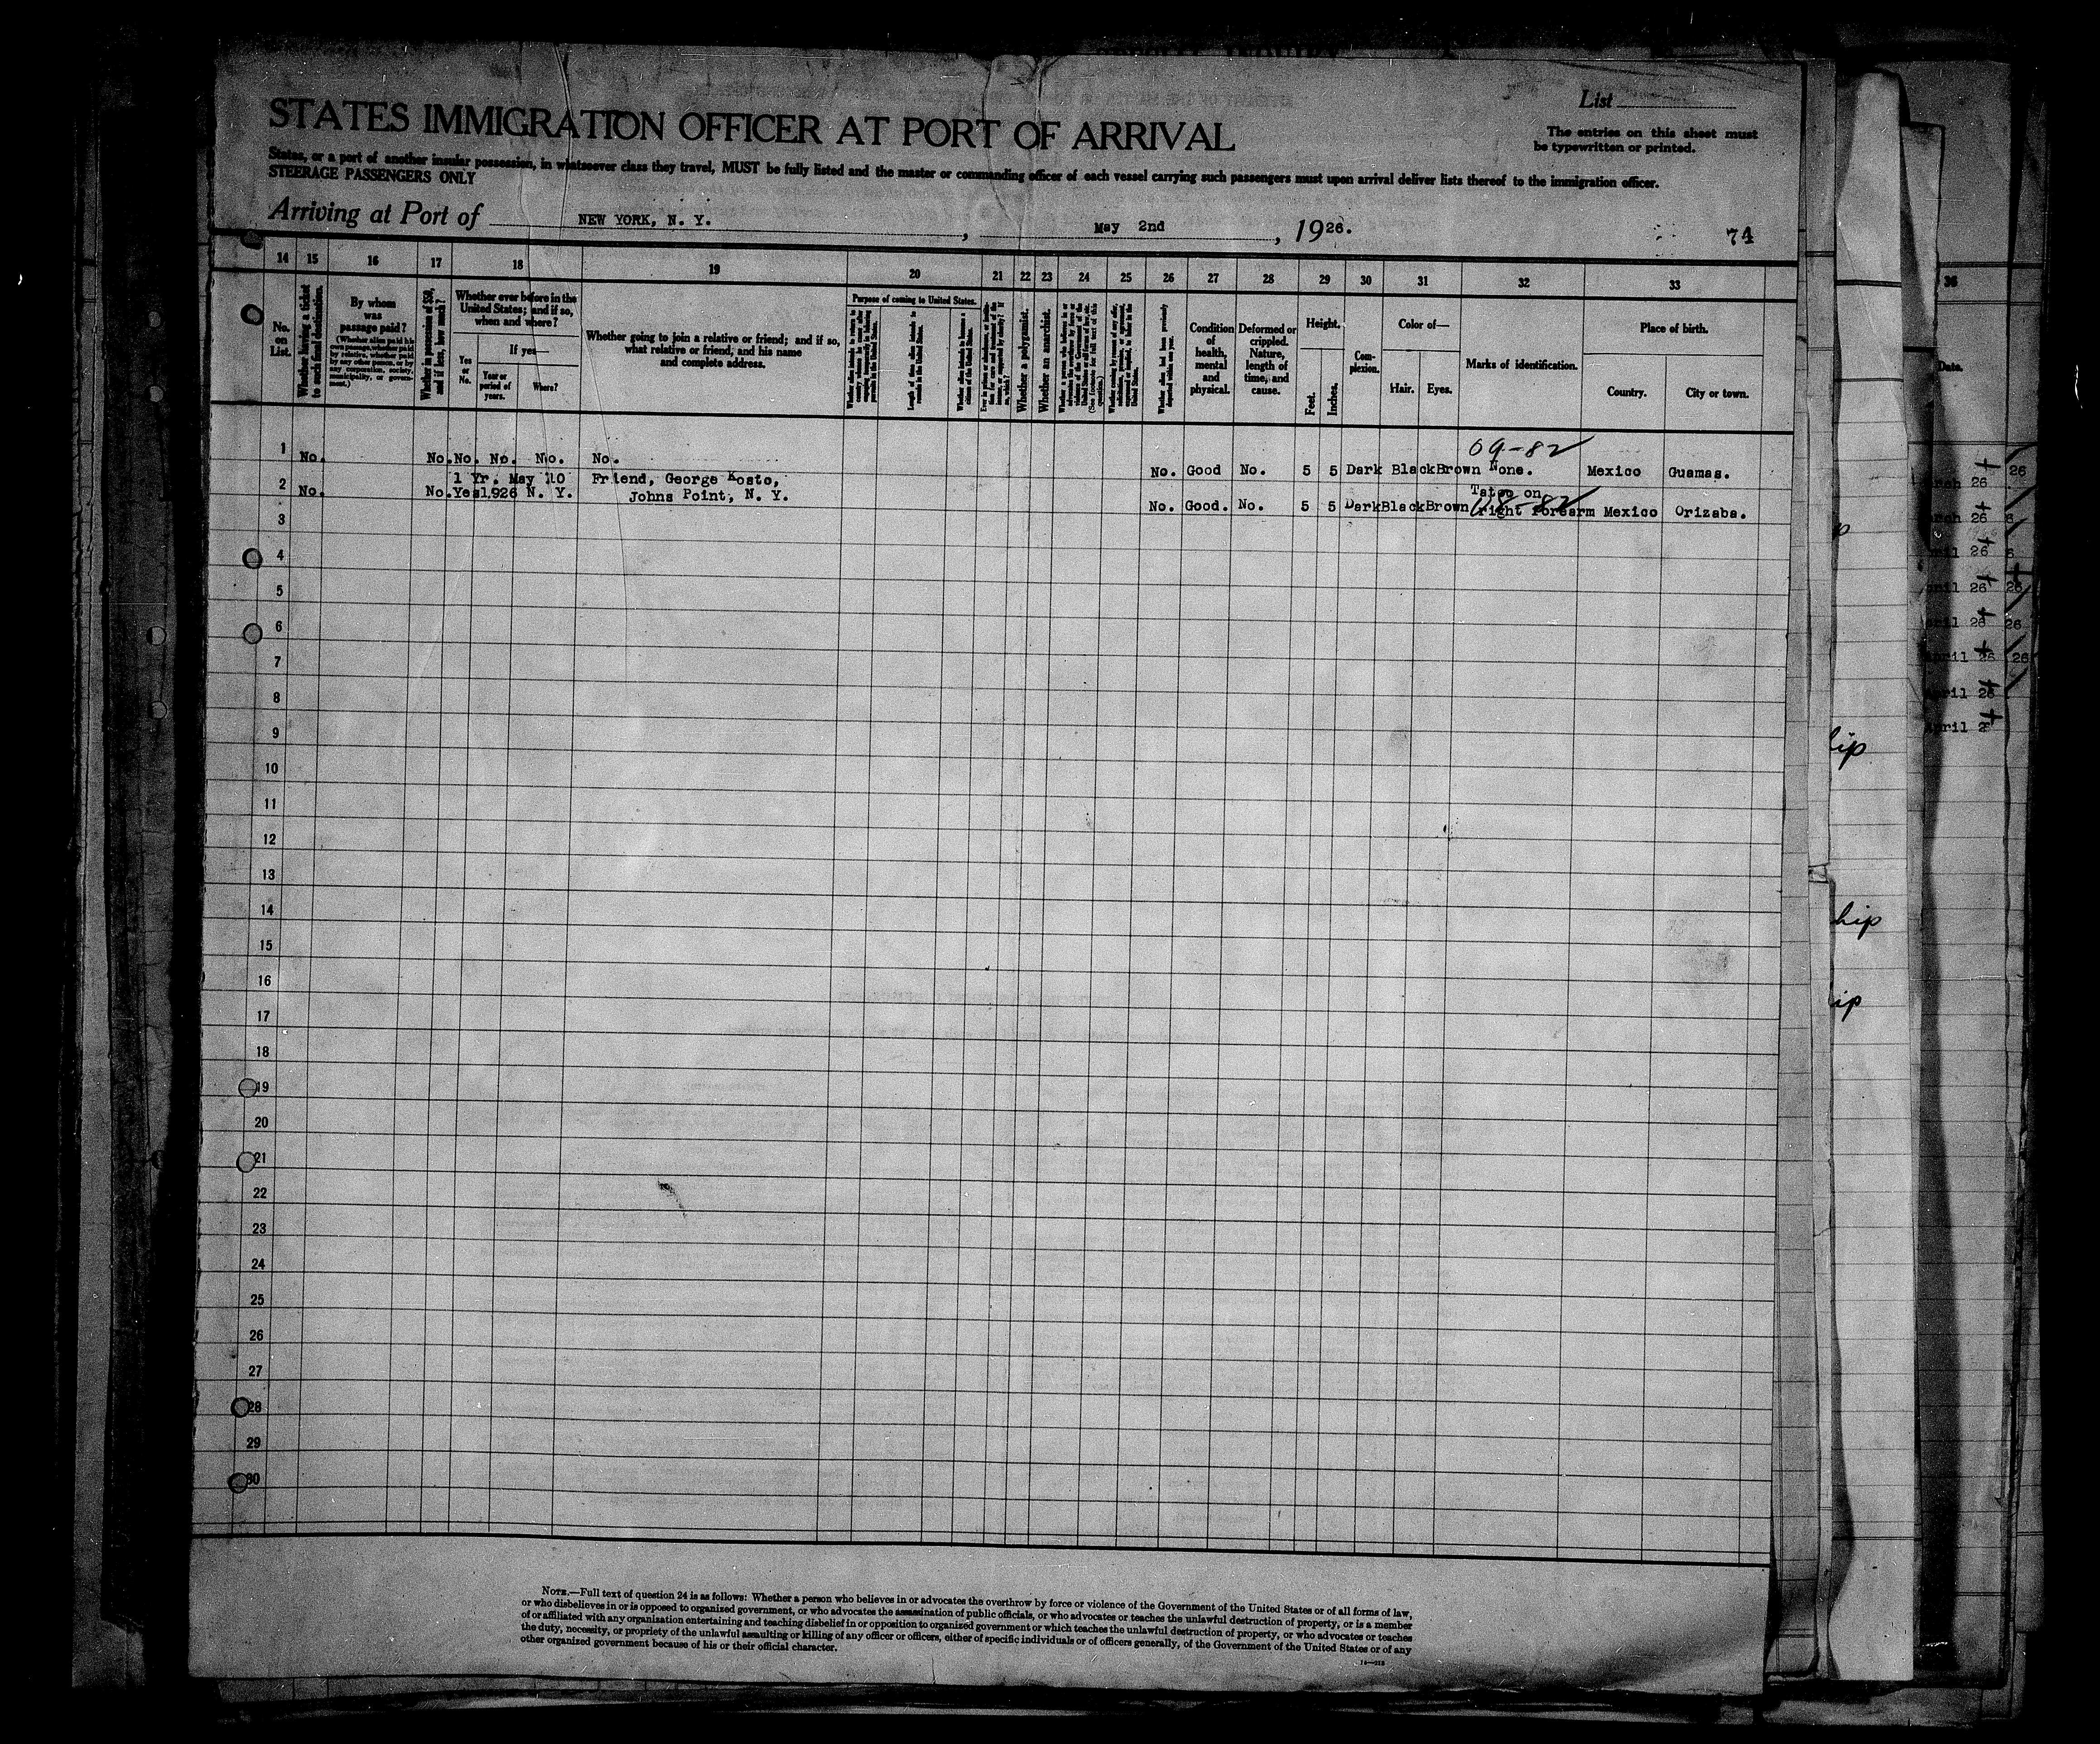 List
STATES IMMIGRATION OFFICER AT PORT OF ARRIVAL
The entries on this sheet must
be typewritten or printed.
States, or a port of another insular possession, in whatsoever class they travel, MUST be fully listed and the master or commanding officer of each vessel carrying such passengers must upon arrival deliver lists thereof to the immigration officer.
STEERAGE PASSENGERS ONLY
Arriving at Port of NEW YORK, N. Y., May 2nd, 1926.
74
14 15 16 17 18 19 20 21 22 23 24 25 26 27 28 29 30 31 32 33
No. on List.
Whether having a ticket to such final destination.
By whom was passage paid?
(Whether alien paid his own passage, whether paid by relative, whether paid by any other person, or by any corporation, society, municipality, or government.)
Whether in possession of $50, and if less, how much?
Whether ever before in the United States; and if so, when and where?
Yes or No.
If yes—
Year or period of years.
Where?
Whether going to join a relative or friend; and if so, what relative or friend, and his name and complete address.
Purpose of coming to United States.
Length of time alien intends to remain in the United States.
Whether alien intends to become a citizen of the United States.
Whether a polygamist.
Whether an anarchist.
Whether alien had been previously deported within one year.
Condition of health, mental and physical.
Deformed or crippled. Nature, length of time, and cause.
Height.
Feet.
Inches.
Complexion.
Color of—
Hair.
Eyes.
Marks of identification.
Place of birth.
Country.
City or town.
09-82
1 No. No. No. No. No. No. No. Good No. 5 5 Dark Black Brown None. Mexico Guamas.
1 Yr. May 10 Friend, George Kosto, Tatoo on
2 No. No. Yes 1926 N. Y. Johns Point, N. Y. No. Good. No. 5 5 Dark Black Brown right forearm Mexico Orizaba.
3
4
5
6
7
8
9
10
11
12
13
14
15
16
17
18
19
20
21
22
23
24
25
26
27
28
29
30
NOTE.—Full text of question 24 is as follows: Whether a person who believes in or advocates the overthrow by force or violence of the Government of the United States or of all forms of law,
or who disbelieves in or is opposed to organized government, or who advocates the assassination of public officials, or who advocates or teaches the unlawful destruction of property, or is a member
of or affiliated with any organization entertaining and teaching disbelief in or opposition to organized government or which teaches the unlawful destruction of property, or who advocates or teaches
the duty, necessity, or propriety of the unlawful assaulting or killing of any officer or officers, either of specific individuals or of officers generally, of the Government of the United States or of any
other organized government because of his or their official character.
36
Date.
April 26
April 26
April 26
April 26
April 26
hip